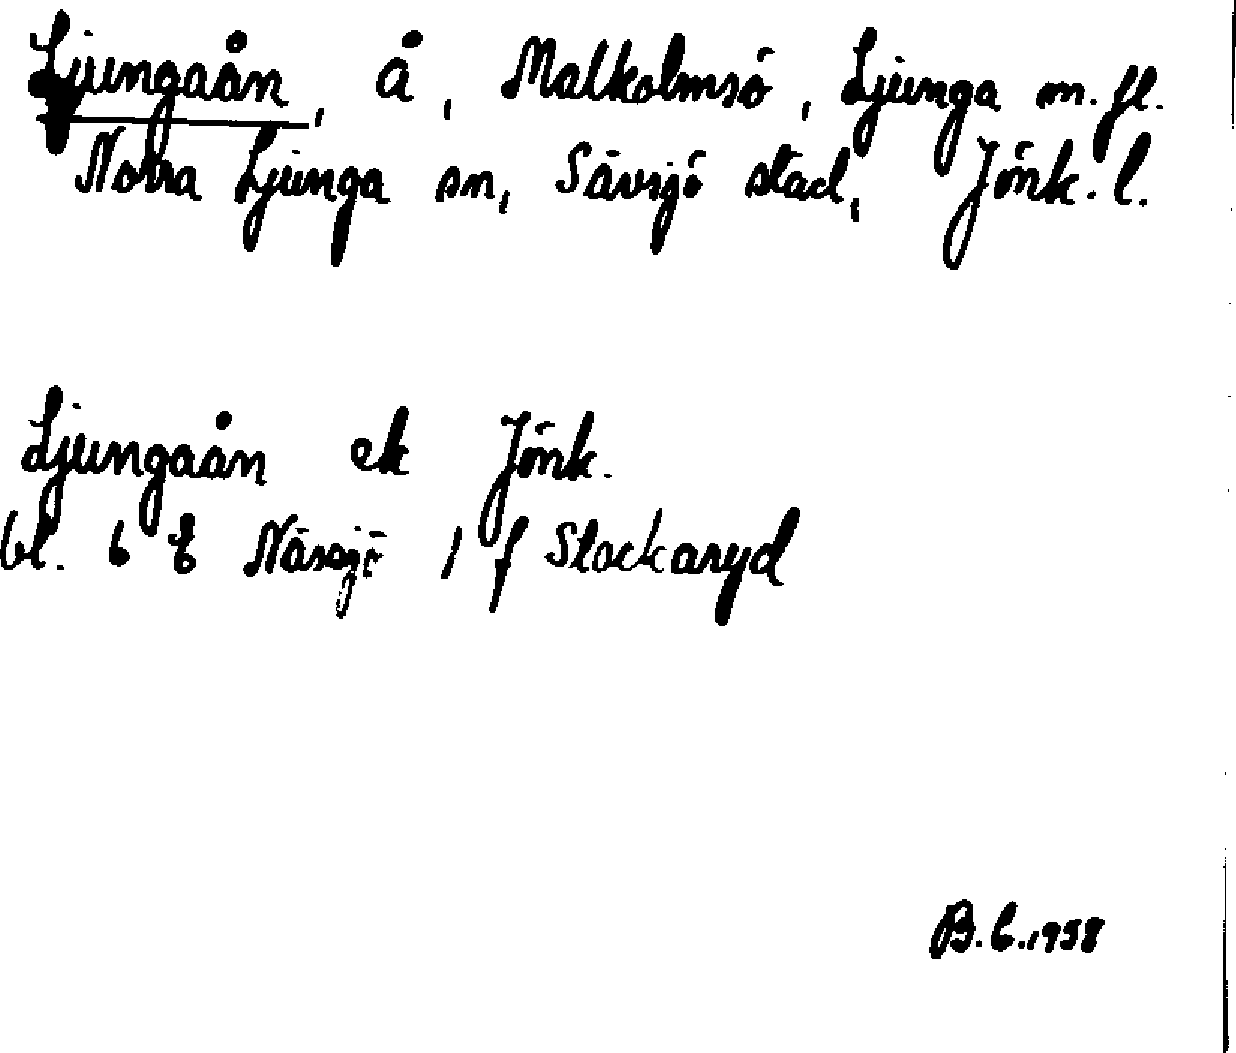 Ljungaån, å, Malkolmsö, Ljunga m. fl.
Norra Ljunga sn, Sävsjö stad, Jönk. l.
Ljungaån ek Jönk.
bl. 6 Nässjö / f Stockaryd
B. E. 1938